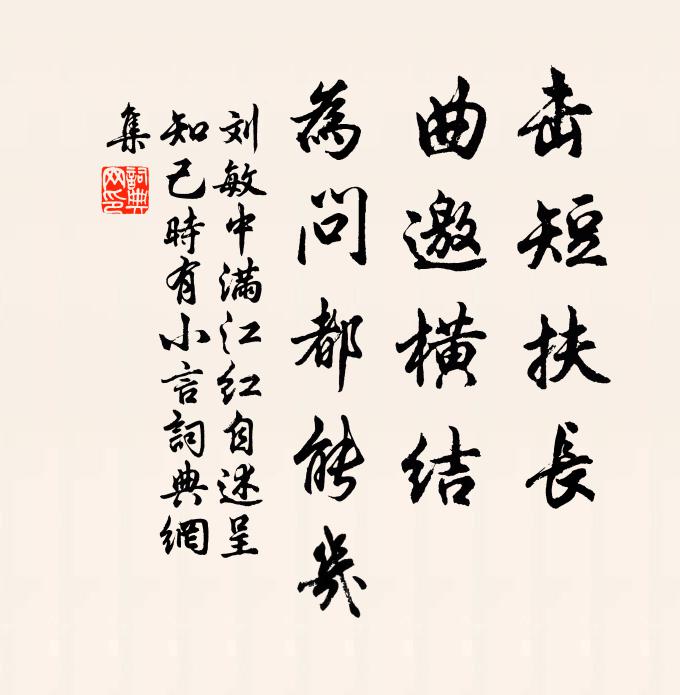 击短扶長
曲邀橫结
為问都能幾
刘敏中满江红自述呈
知己時有小言詞典網
集
詞典
网印